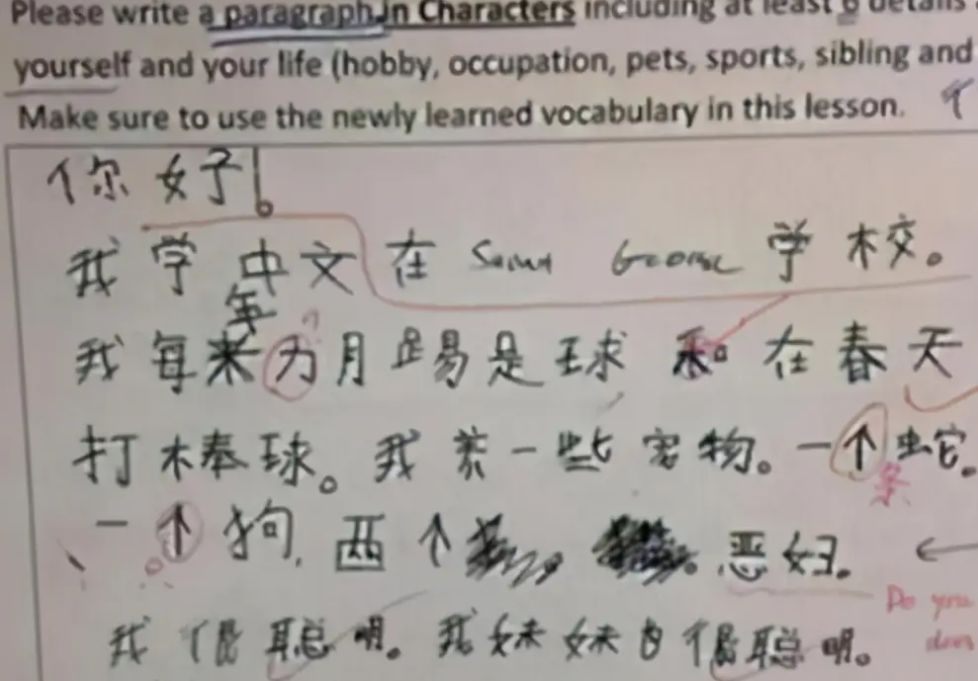 Please write a paragraph in Characters including at least 6 details
yourself and your life (hobby, occupation, pets, sports, sibling and
Make sure to use the newly learned vocabulary in this lesson.
你好。
我学中文在 学校。
年
我每 月踢是球 在春天
打棒球。我养一些宠物。一个蛇。
条
一个狗, 两个 恶妇。
Do you
我很聪明。我妹妹白很聪明。
does